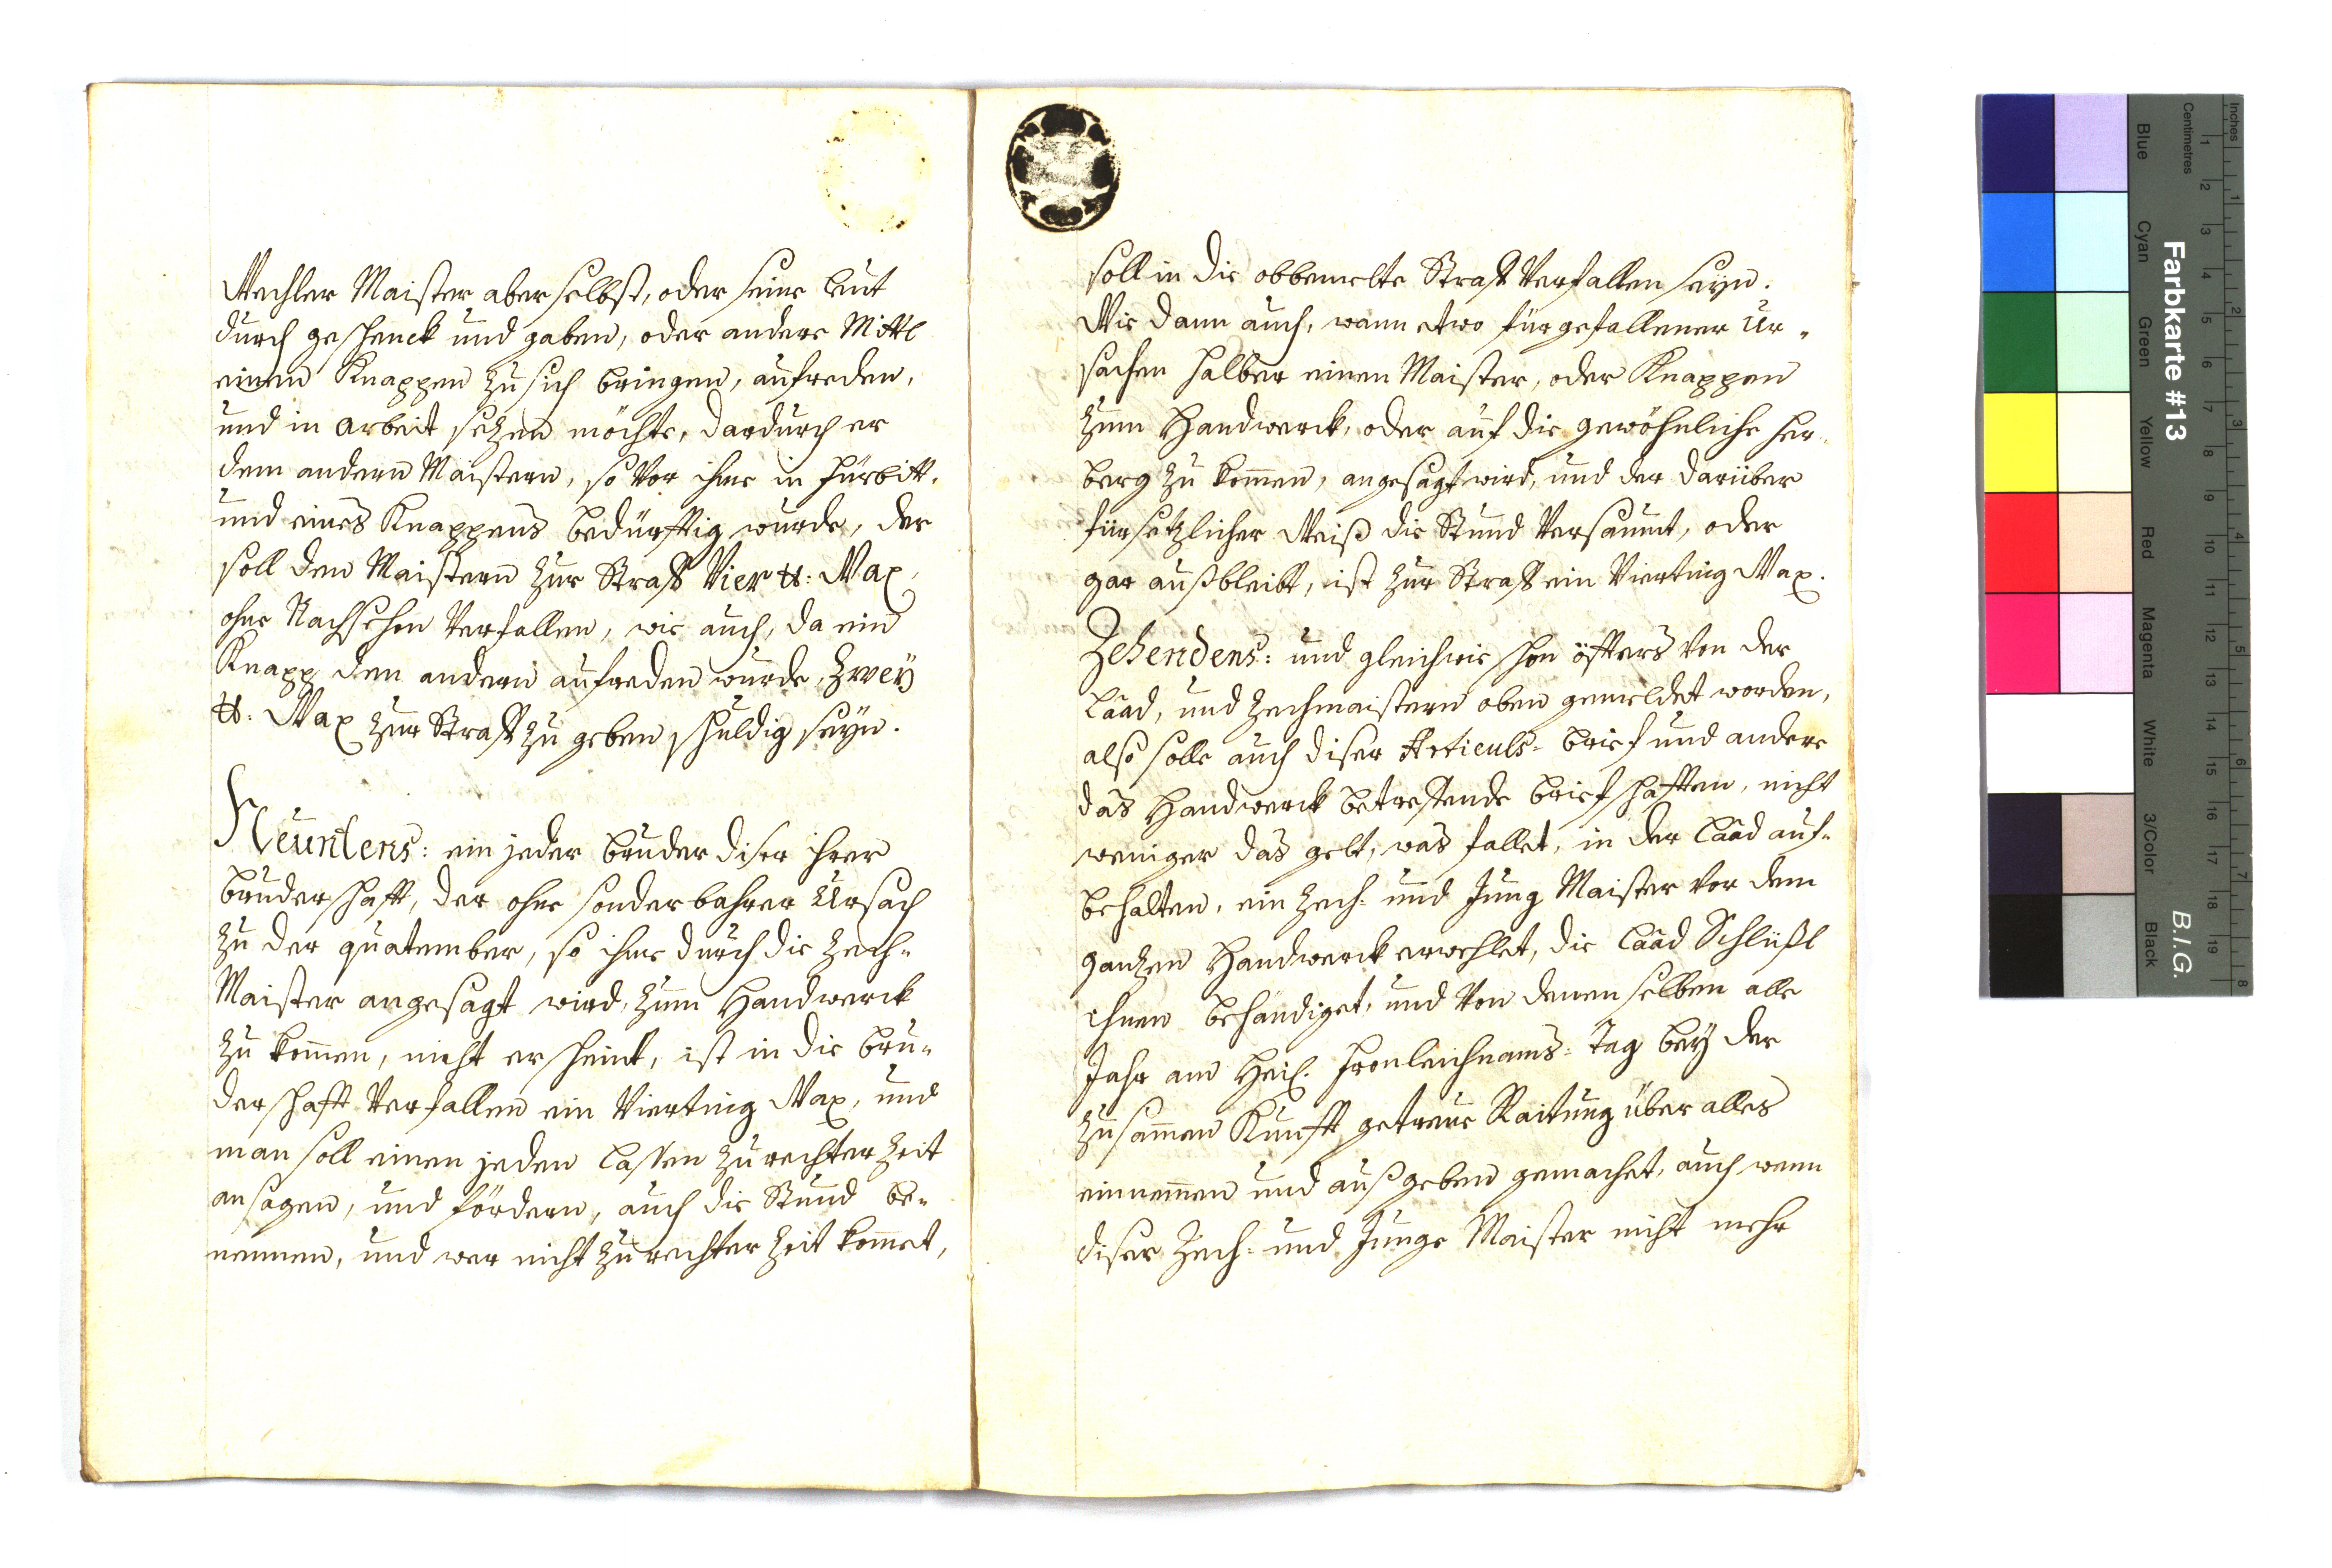 Wechler Maister aber selbst, oder seine Leut
durch geschenck und gaben, oder andere Mittl
einen Knappen zu sich bringen, aufreden,
und in arbeit sezen möchte, dardurch er
dem andern Maistern, so vor ihme in Fürbitt,
und eines Knappens bedürfftig wurde, der
soll den Maistern zur Straff Vier ℔: Wax,
ohne Nachsehen verfallen, wie auch, da ein
Knapp den andern aufreden wurde, Zwey
℔: Wax zur Straff zu geben schuldig seyn.
Neüntens: ein jeder bruder diser ihrer
bruderschafft, der ohne sonderbahrer Ursach
zu der quatember, so ihme durch die Zech-
Maister angesagt wird, zum Handwerck
zu kom̄en, nicht erscheint, ist in die bru-
derschafft verfallen ein Vierting Wax, und
man soll einen jeden lassen zu rechter Zeit
ansagen, und fördern, auch die Stund be-
nennen, und wer nicht zu rechter Zeit kom̄et,
soll in die obbemelte Straff verfallen seyn.
Wie dann auch, wann etwo fürgefallener Ur-
sachen halber einen Maister, oder Knappen
zum Handwerck, oder auf die gewöhnliche Her-
berg zu kom̄en, angesagt wird, und der darüber
fürsetzlicher Weiß die Stund versaumt, oder
gar außbleibt, ist zur Straff ein Vierting Wax.
Zehendens: und gleichwie schon öffters von der
Laad, und Zechmaistern oben gemeldet worden,
also solle auch diser Articuls-brief und andere
das Handwerck betreffende briefschafften, nicht
weniger das gelt, was fallet, in der Laad auf-
behalten, ein Zech- und Jung Maister vor dem
ganzen Handwerck erwehlet, die Laad Schlüßl
ihnen behändiget, und von denenselben alle
Jahr am Heil. Fronleichnams-Tag bey der
Zusam̄en Kunfft getreue Raitung über alles
einnem̄en und außgeben gemachet, auch wenn
diser Zech- und Junge Maister nicht mehr
Farbkarte #13
B.I.G.
Inches
Centimetres
Blue
Cyan
Green
Yellow
Red
Magenta
White
3/Color
Black
1 2 3 4 5 6 7 8 9 10 11 12 13 14 15 16 17 18 19
1 2 3 4 5 6 7 8